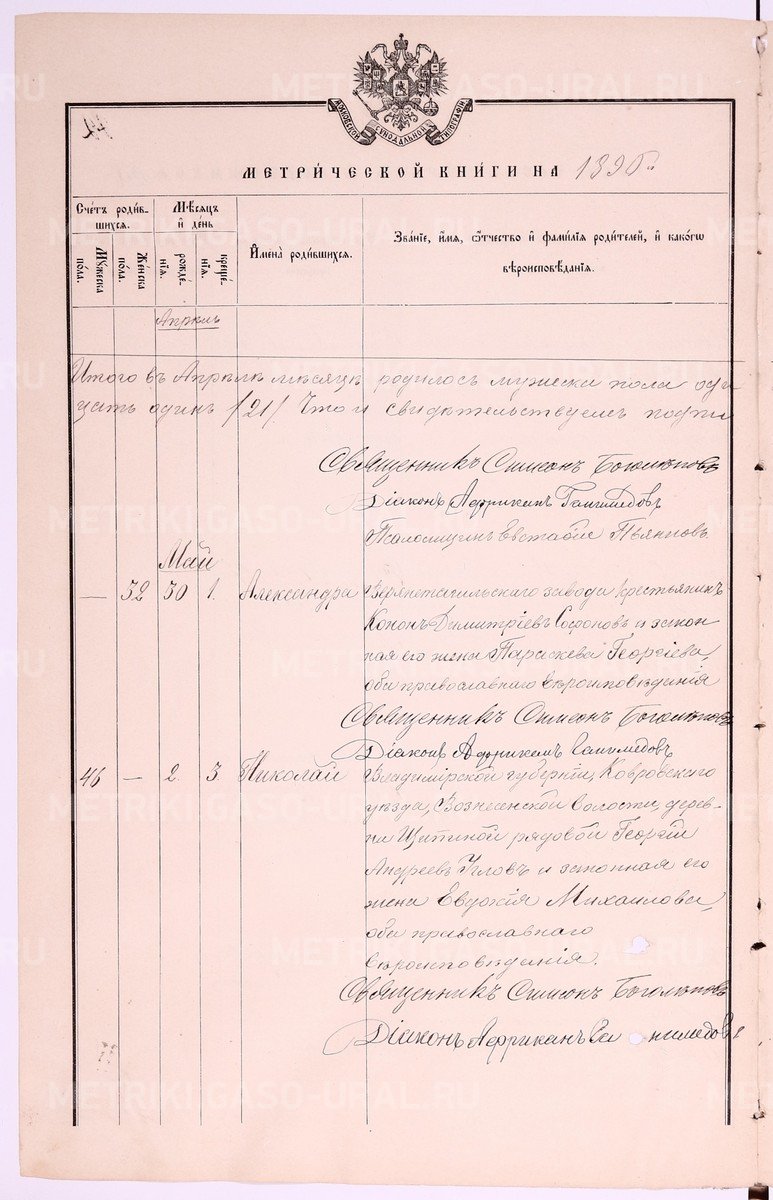 МЕТРИ́ЧЕСКОЙ КНИ́ГИ НА 189
Сче́тъ роди́в-
шихся.
Мѹ́жеска
по́ла.
Же́нска
по́ла.
Мѣ́сяцъ
и́ день
рожде́-
нїя.
креще́-
нїя.
И҆мена̀ роди́вшихся.
Зва́нїе, и҆́мя, ѻ҆́тчество и҆ фами́лїя роди́телей, и҆ како́гѡ
вѣроисповѣ́данїя.
Апрѣль
Итого въ Апрѣлѣ мѣсяцѣ родилось мужеска пола
цать одинъ /21/. Что и свидѣтельствуемъ
Священникъ Симеонъ Боголѣповъ
Діаконъ Африканъ
Псаломщикъ Евстафій Пьянковъ
Май
— 32 30 1. Александра Верхнетагильскаго завода крестьянинъ
Кононъ Димитріевъ Софоновъ и закон
ная его жена Параскева Георгіева,
оба православнаго вѣроисповѣданія
Священникъ Симеонъ Боголѣповъ
Діаконъ Африканъ
46 — 2. 3. Николай Владимірской губерніи, Ковровскаго
уѣзда, Вознесенской волости, дерев-
ни рядовой Георгій
Андреевъ и законная его
жена Евдокія Михаилова,
оба православнаго
вѣроисповѣданія.
Священникъ Симеонъ Боголѣповъ
Діаконъ Африканъ
METRIKI.GASO-URAL.RU